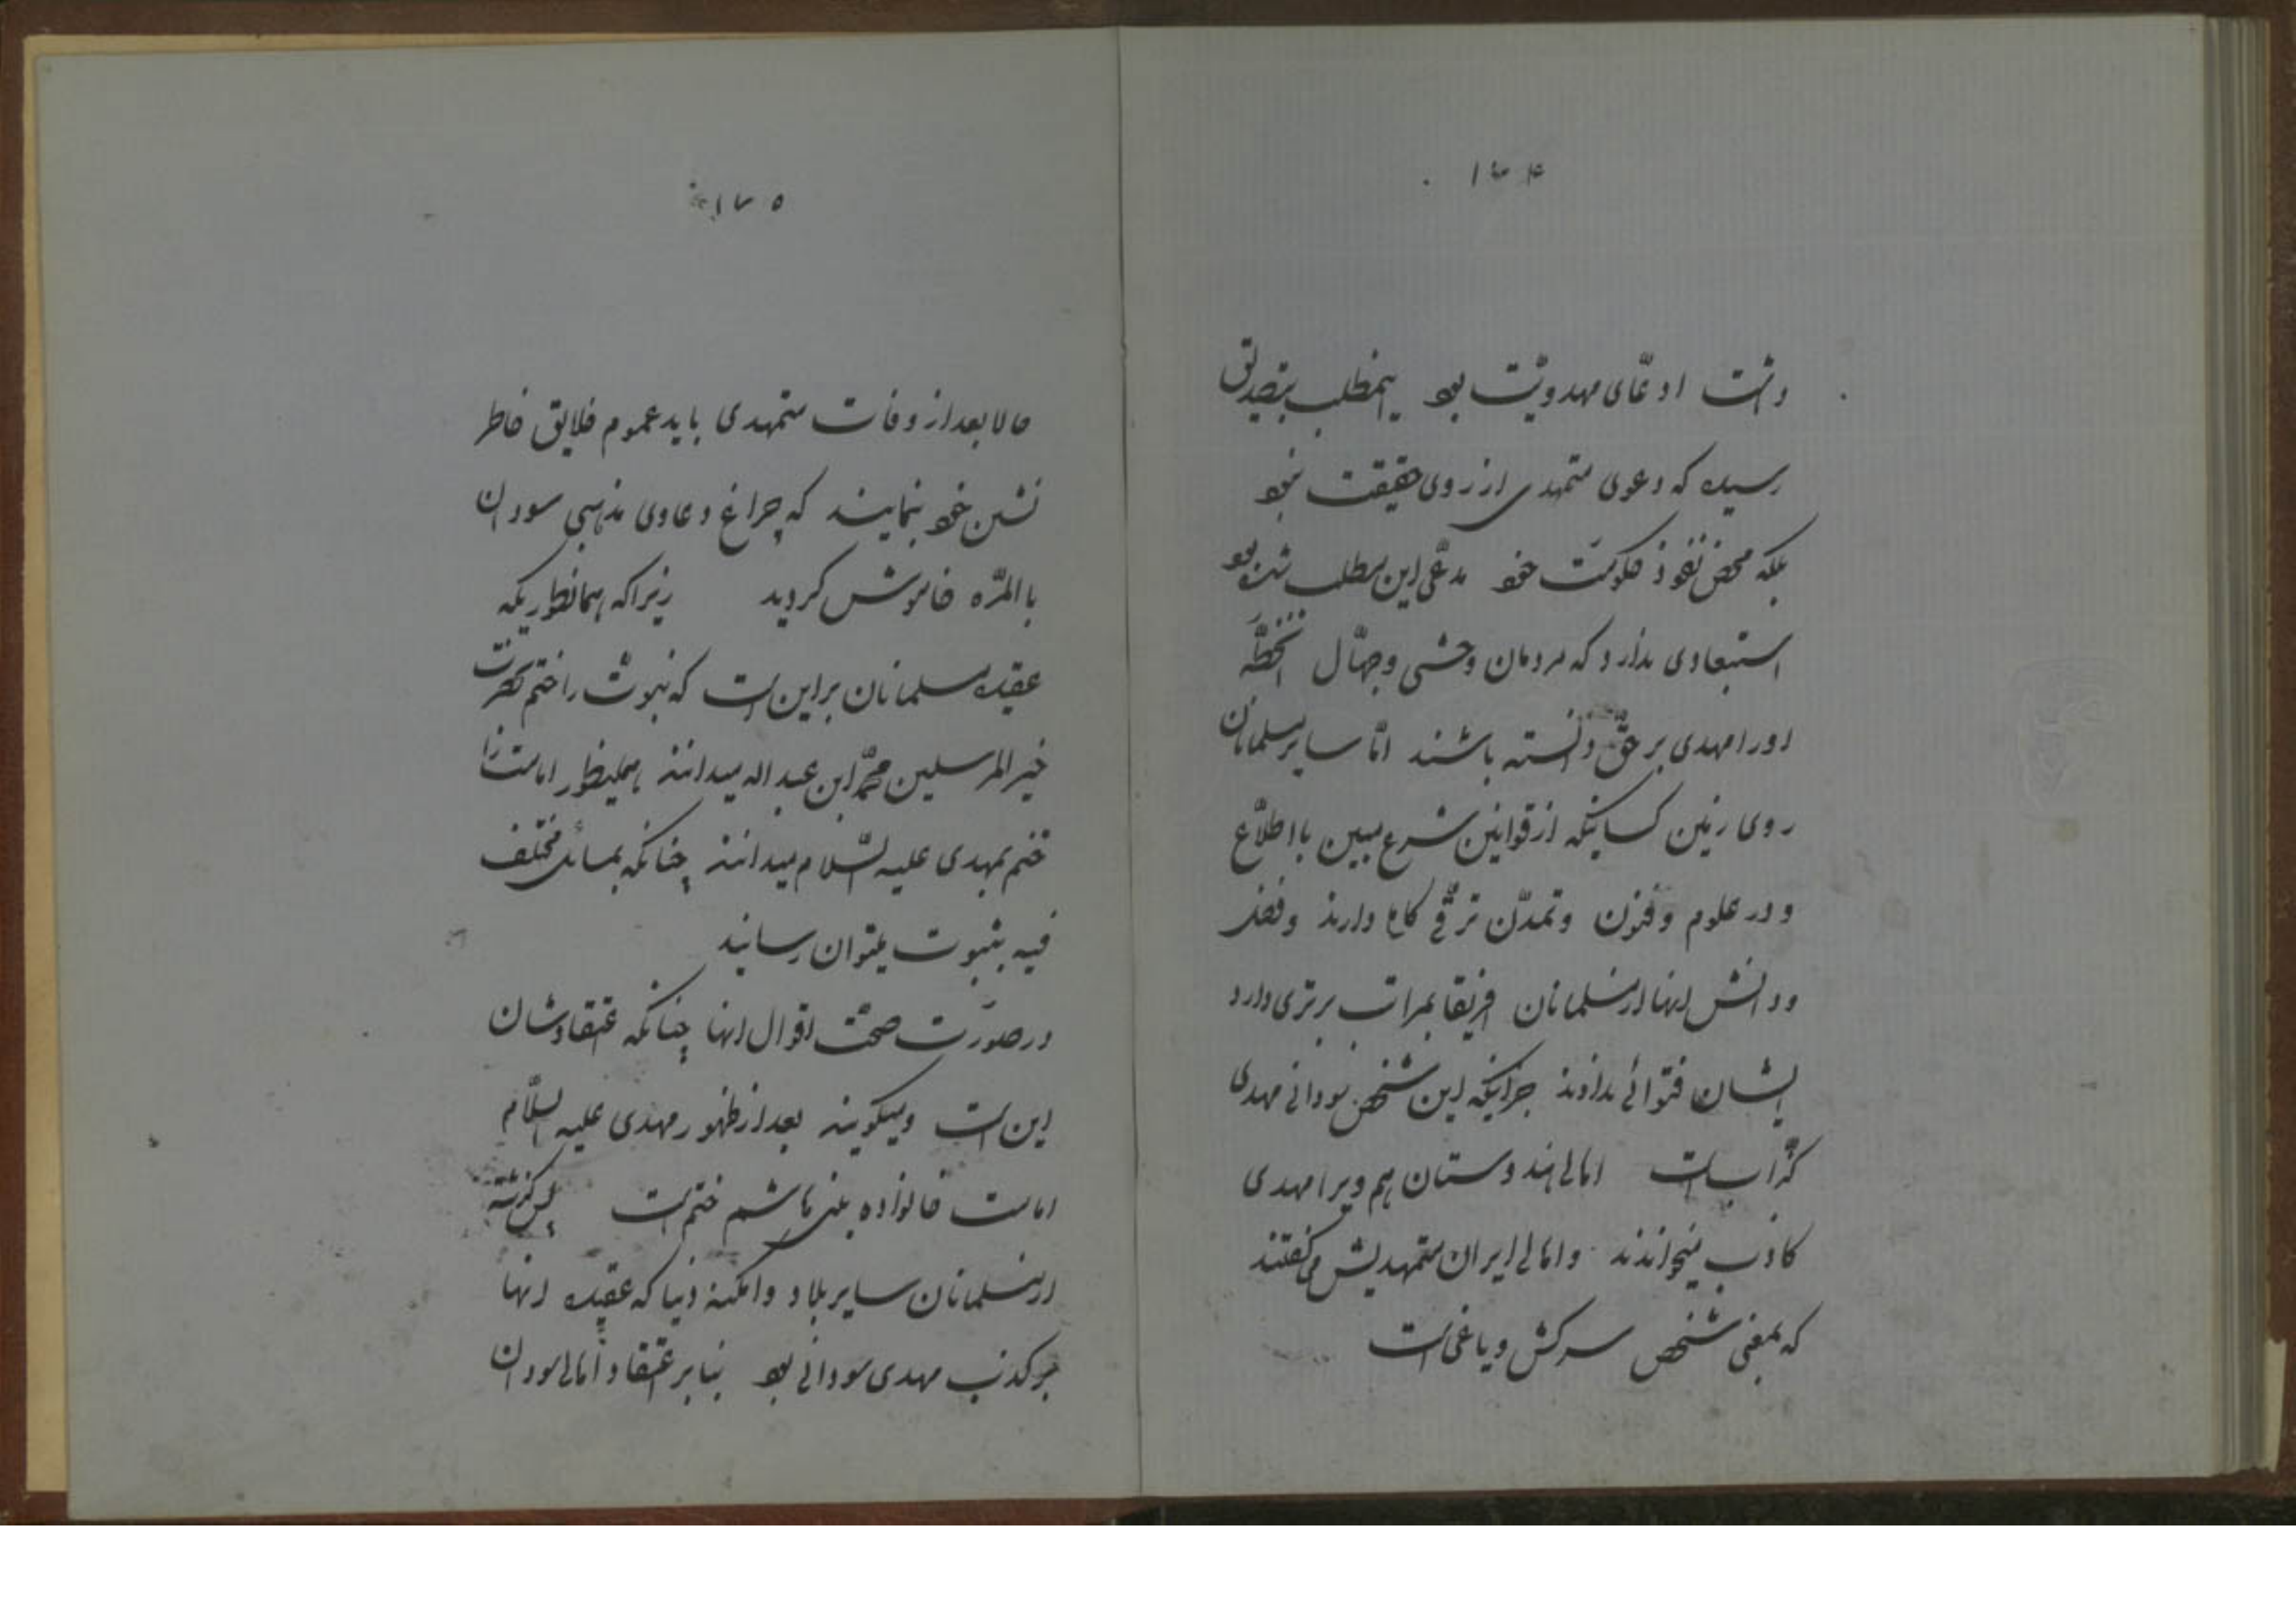 ۱۷۴
داشت ادعّای مهدویّت بود اینمطلب بتصدیق
رسیده که دعوی متمهدی از روی حقیقت نبود
بلکه محض نفوذ حکومت خود مدعّی این مطلب شده بود
استبعادی ندارد که مردمان وحشی و جهّال آنخطّه
اورا مهدی بر حقّ دانسته باشند امّا سایر مسلمانان
روی زمین کسانیکه از قوانین شرع مبین با اطلاّع
و در علوم و فنون و تمدّن ترقّی کامل دارند و فضل
و دانش انها از مسلمانان افریقا بمراتب برتری دارد
ایشان فتوائی ندادند جز اینکه این شخص سودانی مهدی
کذّاب است اهالی هندوستان هم ویرا مهدی
کاذب میخواندند و اهالی ایران متمهدیش میگفتند
که بمعنی شخص سرکش و یاغی است
۱۷۵
حالا بعد از وفات متمهدی باید عموم خلایق خاطر
نشین خود بنمایند که چراغ دعاوی مذهبی سودان
باالمرّه خاموش گردید زیراکه همانطوریکه
عقیده مسلمانان بر این است که نبوت را ختم بحضرت
خیرالمرسلین محمّد ابن عبداله میدانند همینطور امامت را
ختم بمهدی علیه السّلام میدانند چنانکه بمسائل مختلف
فیه بثبوت میتوان رسانید
در صورت صحّت اقوال انها چنانکه اعتقادشان
این است و میگویند بعد از ظهور مهدی علیه السلاّم
امامت خانواده بنی هاشم ختم است پس گذشته
از مسلمانان سایر بلاد و امکنه دنیا که عقیده انها
بر کذب مهدی سودانی بود بنابر اعتقاد اهالی سودان